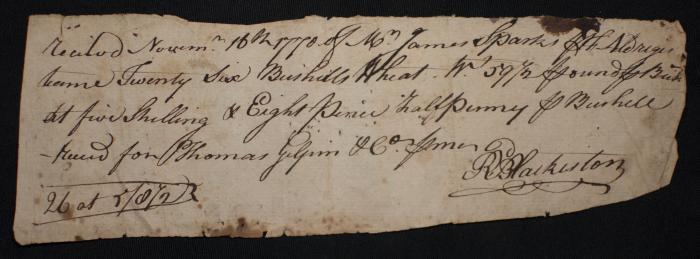 Receivd Novem.r 16th 1770 of Mr. James Sparks
tame Twenty Six Bushells Wheat. Wt. 57½ pound
At five Shilling & Eight Pence half penny ⅌ Bushell
Recd for Thomas Gilpin & Co. ⅌ me
Rd. Blackiston
26 at 5/8½